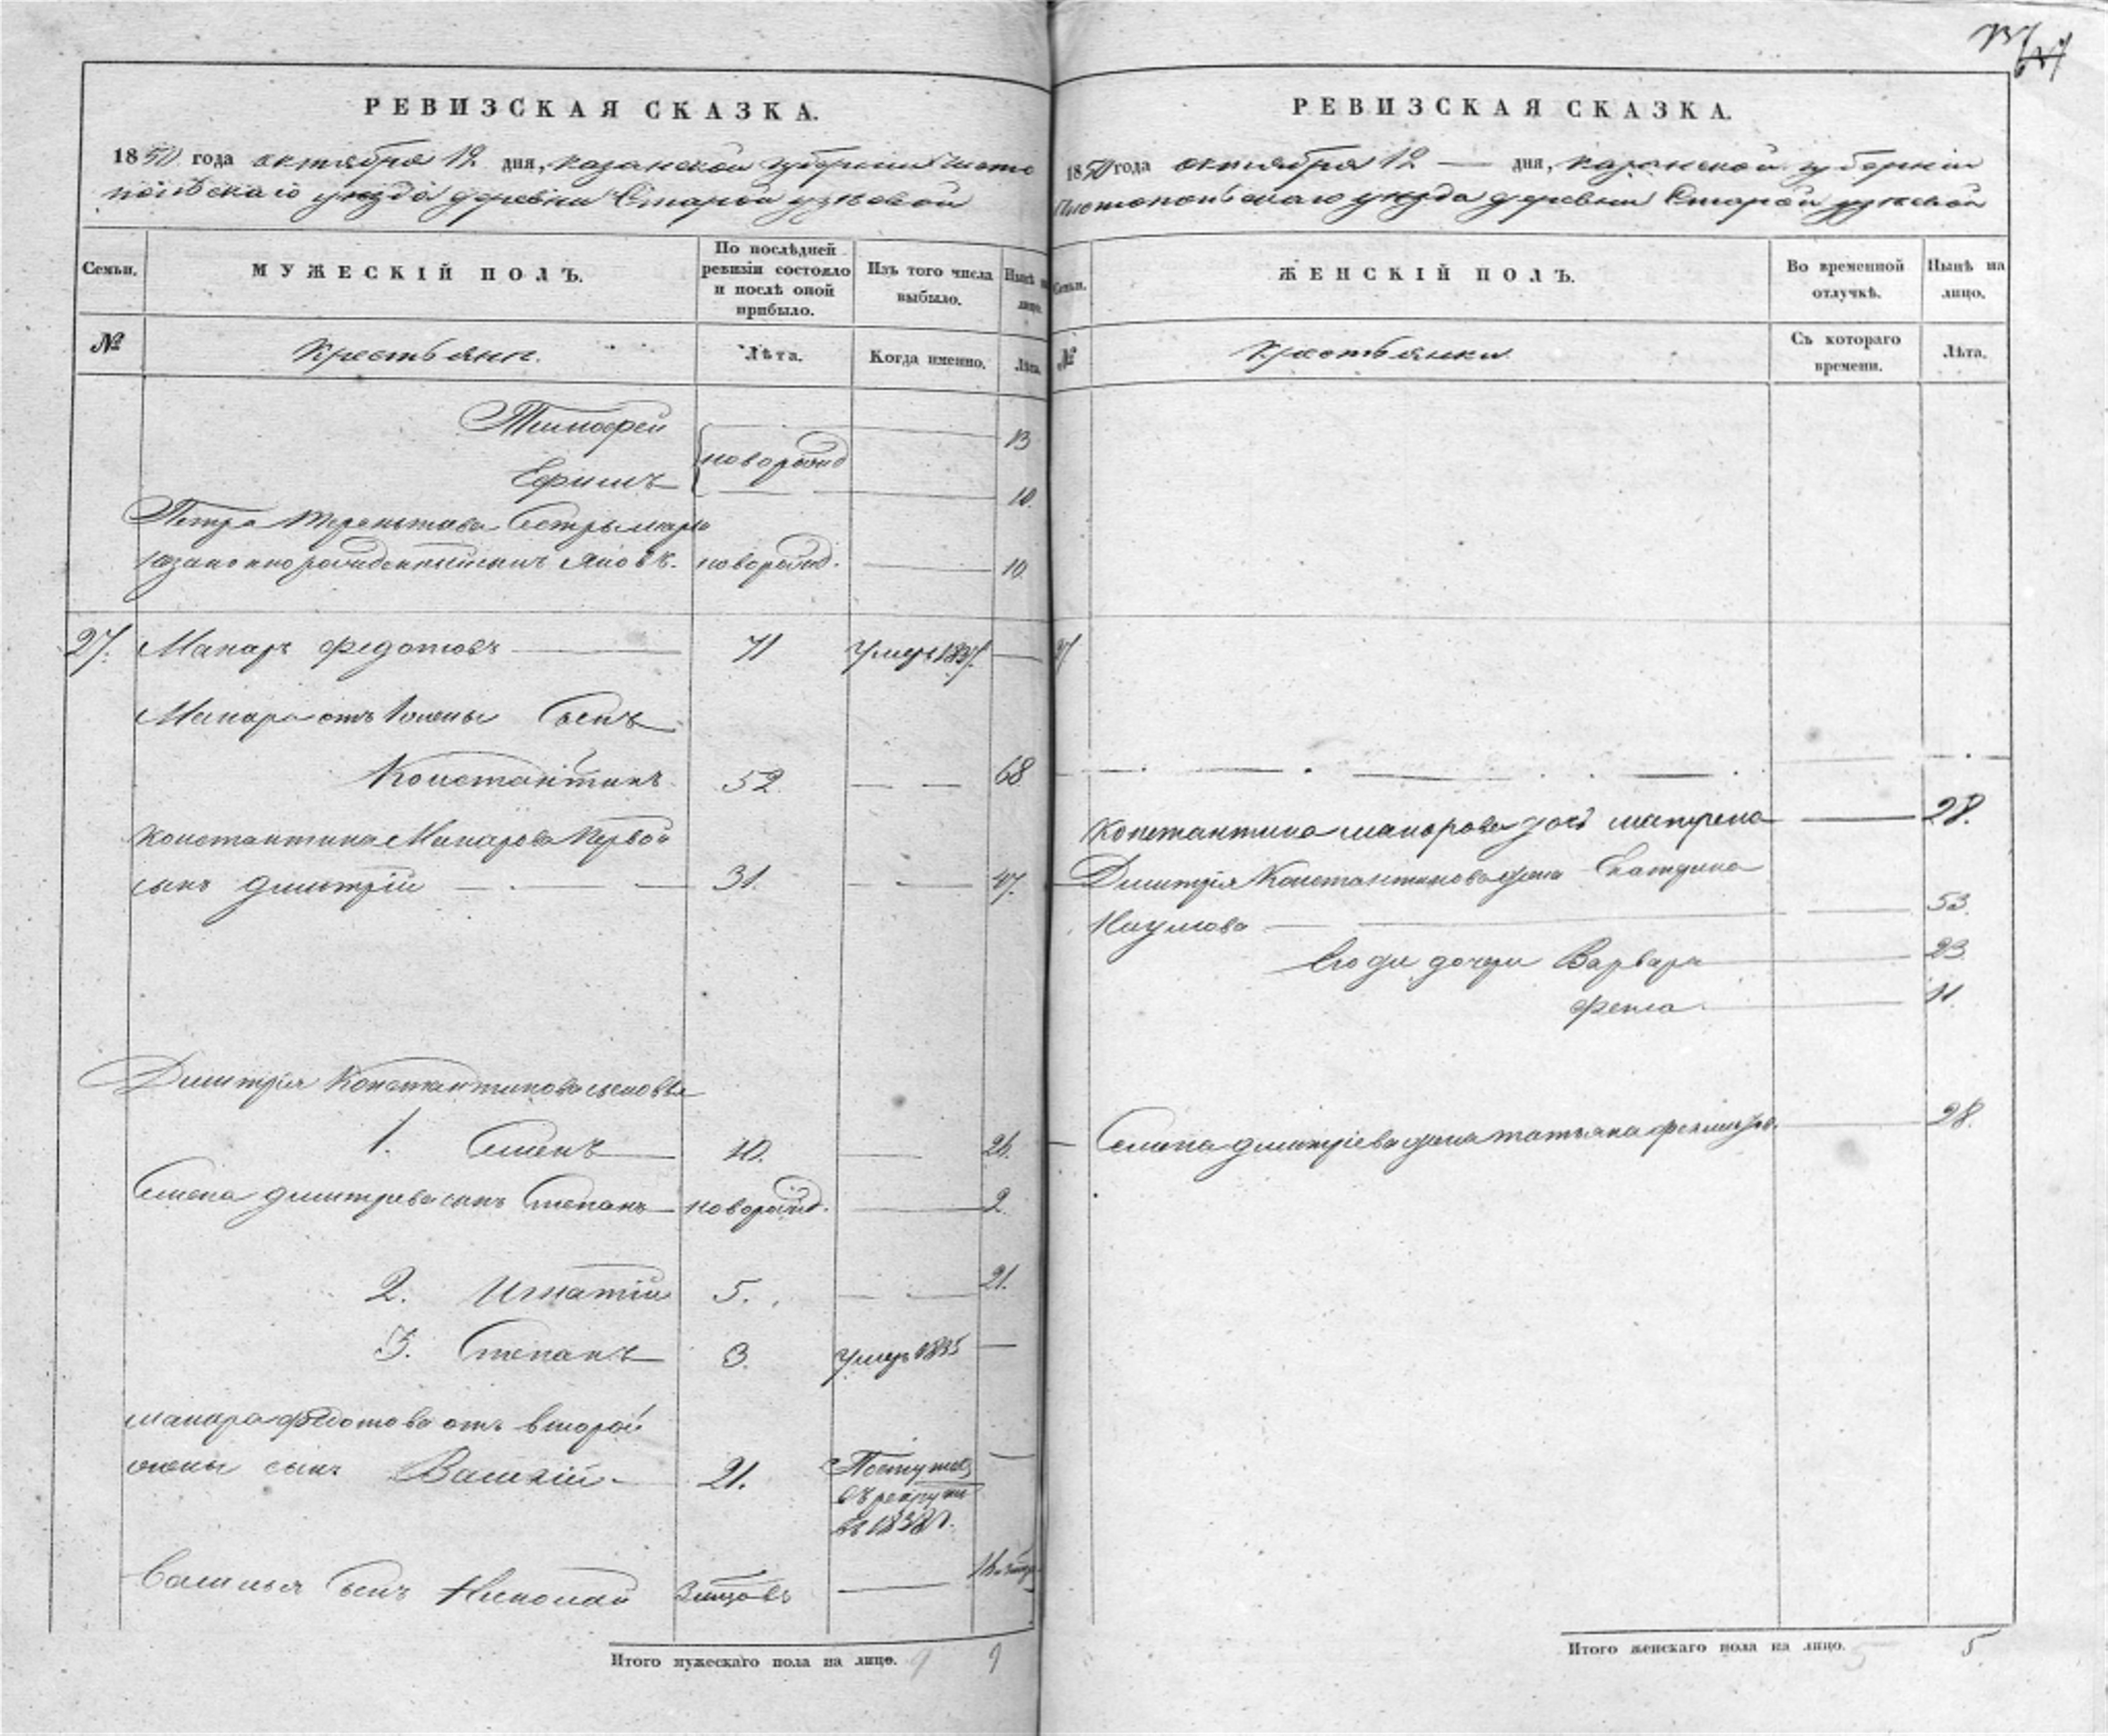 РЕВИЗСКАЯ СКАЗКА.
1850 года октября 12 дня, казанской губернiи Чисто
польскаго уезда деревни Старой узеевой
Семьи.
МУЖЕСКIЙ ПОЛЪ.
По послѣдней ревизiи состояло и послѣ оной прибыло.
Изъ того числа выбыло.
Нынѣ на лицо.
№
Крестьяне.
Лѣта.
Когда именно.
Лѣта.
Тимофей 13
новорожд
Ефимъ 10.
Петра Терентьева Сестры марьи
рожденный сынъ Яковъ. новорожд. 10.
27. Макаръ федотовъ 71 Умеръ 1837.
Макара отъ 1 жены Сынъ
Константинъ 52 68
Константина Макарова Первой
сынъ дмитрiй 31. 47.
Дмитрiя Константинова сыновья
1. Семенъ 10. 26.
Семена дмитрева сынъ Степанъ новорожд. 2
2. Игнатiй 5. 21.
3. Степанъ 3. Умеръ 1835
макара федотова отъ второй
жены сынъ Василiй 21. Поступилъ
въ рекруты
въ 1838 г.
Василья Сынъ Николай 3 мѣцовъ
Итого мужескаго пола на лицо. 9 9
РЕВИЗСКАЯ СКАЗКА.
1850 года октября 12 дня, казанской губернiи
Чистопольскаго уезда деревни Старой узеевой
Семьи.
ЖЕНСКIЙ ПОЛЪ.
Во временной отлучкѣ.
Нынѣ на лицо.
№
Крестьянки
Съ котораго времени.
Лѣта.
27
Константина макарова дочь матрена 28.
Дмитрiя Константинова жена Екатерина
Наумова 53.
Ево дочери Варвара 23
фекла 11.
Семена дмитрiева жена татьяна 28.
Итого женскаго пола на лицо. 5 5